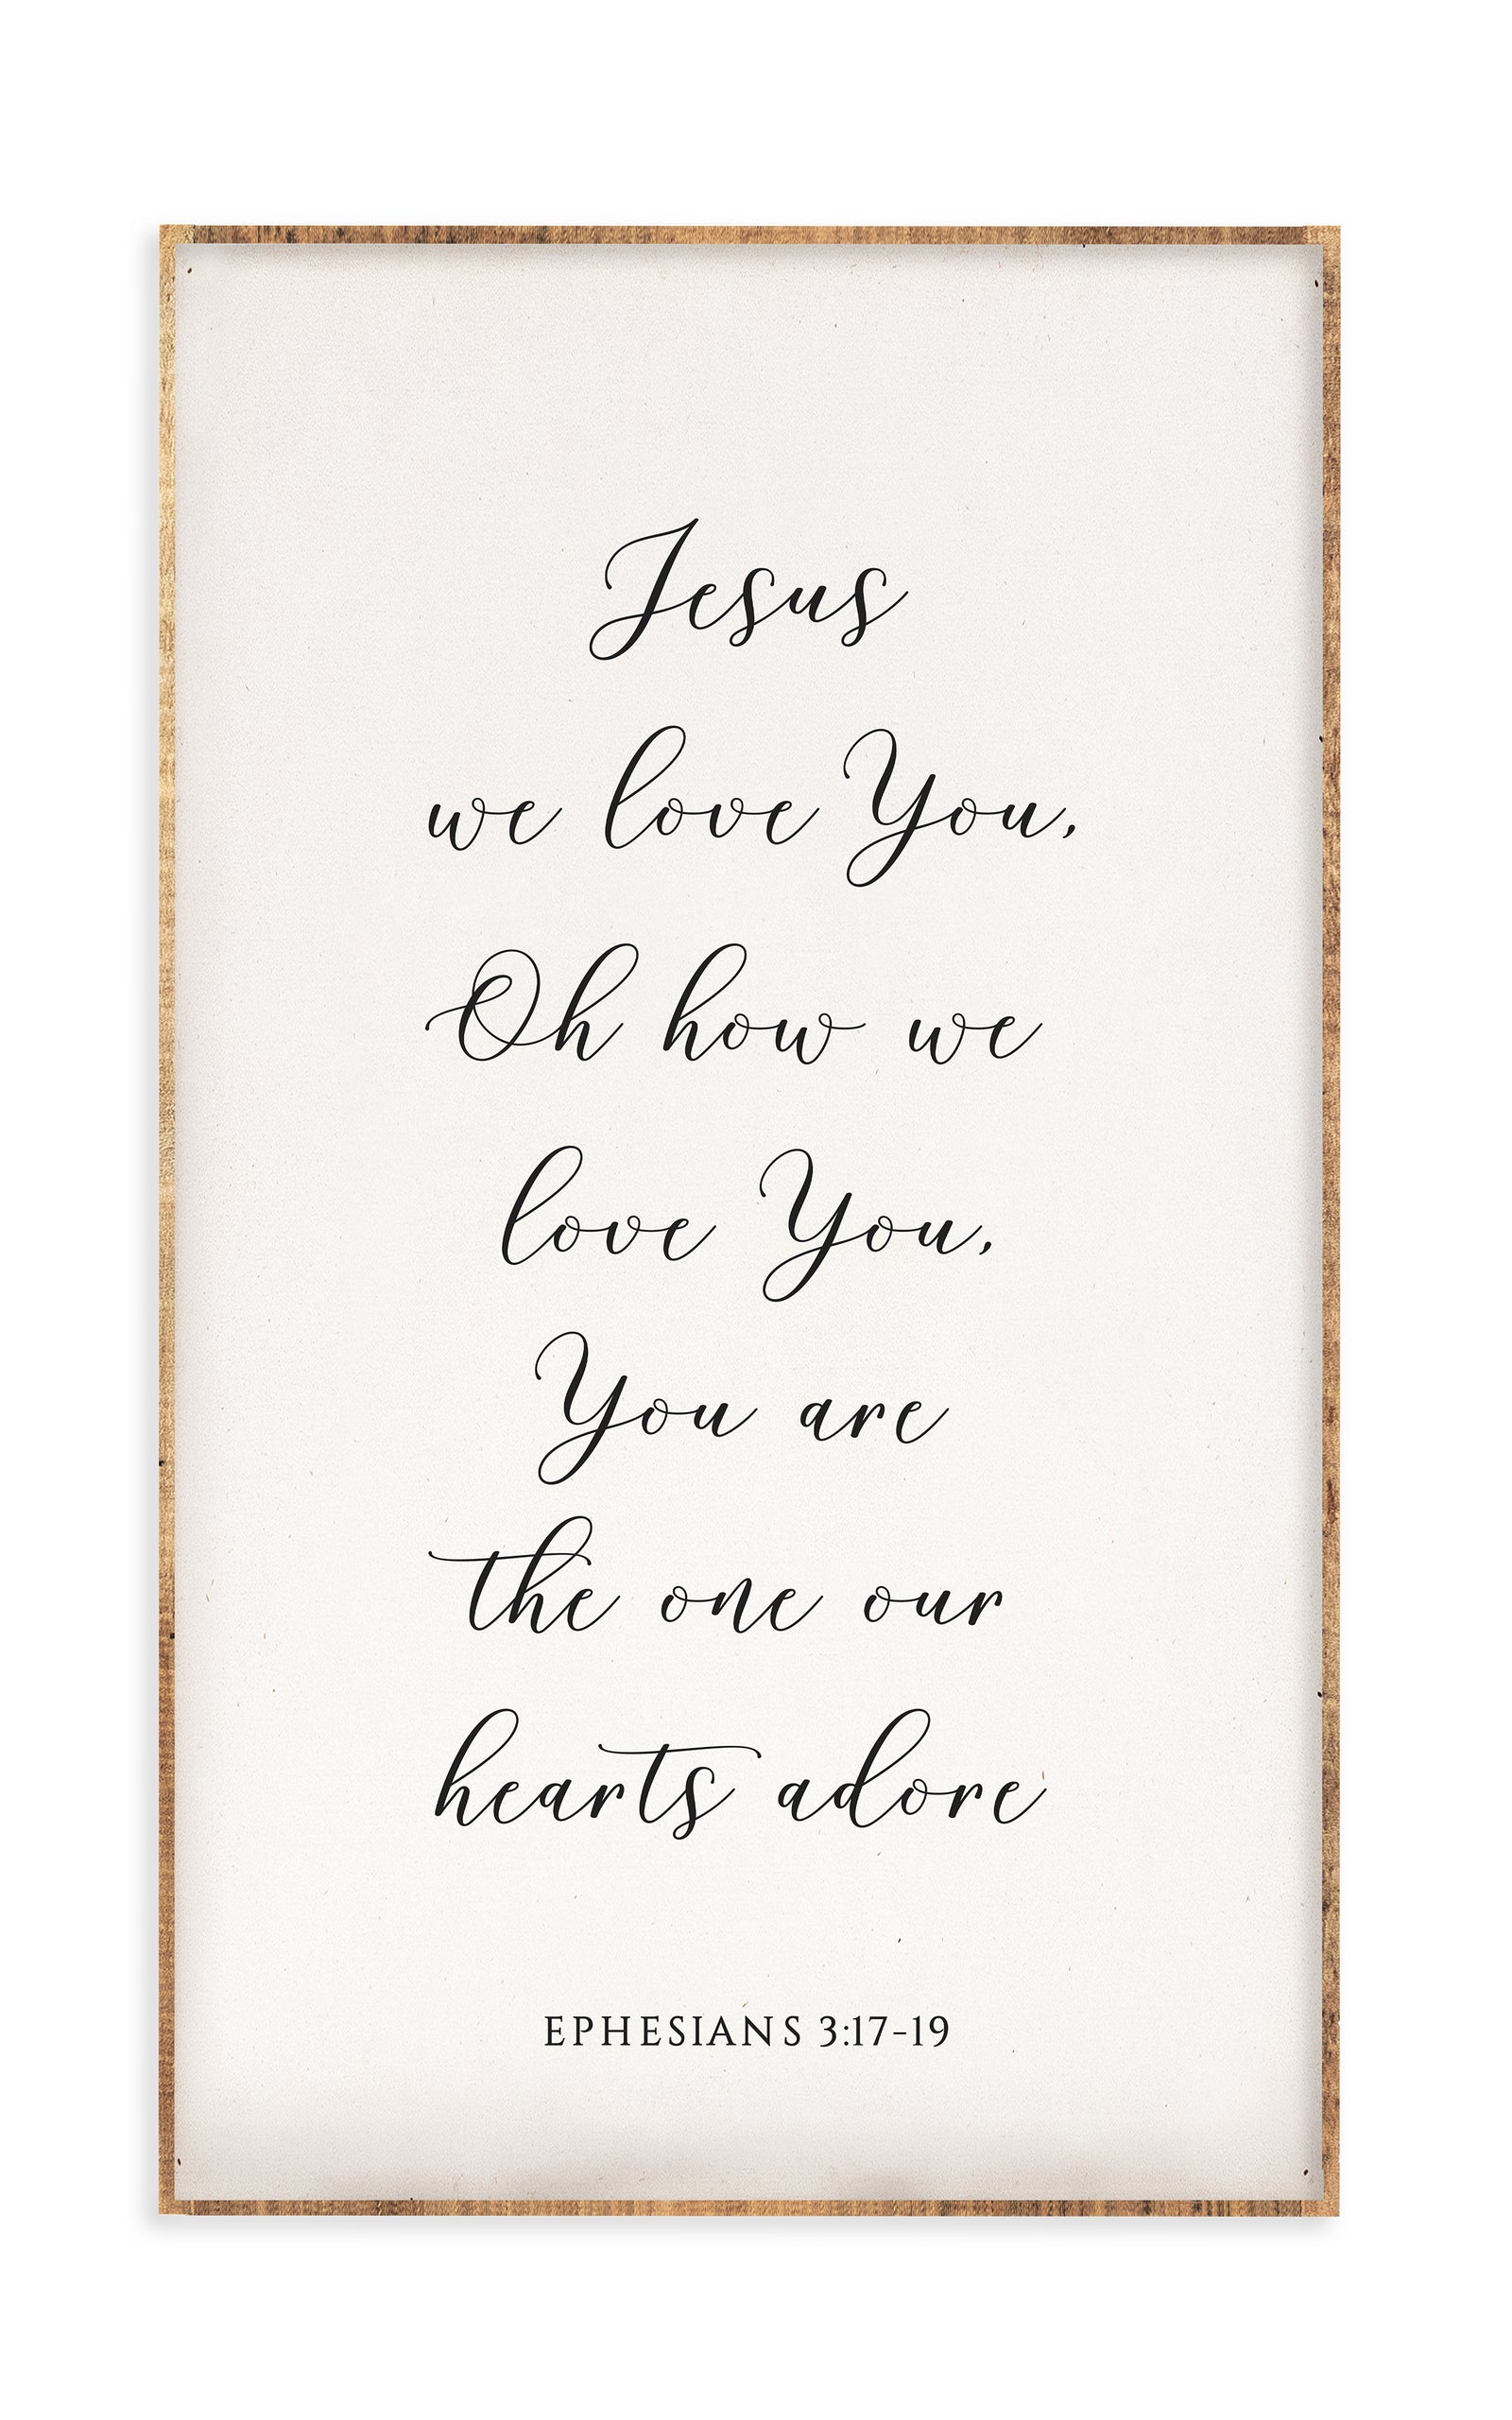 Jesus
we love You,
Oh how we
love You,
You are
the one our
hearts adore
EPHESIANS 3:17-19